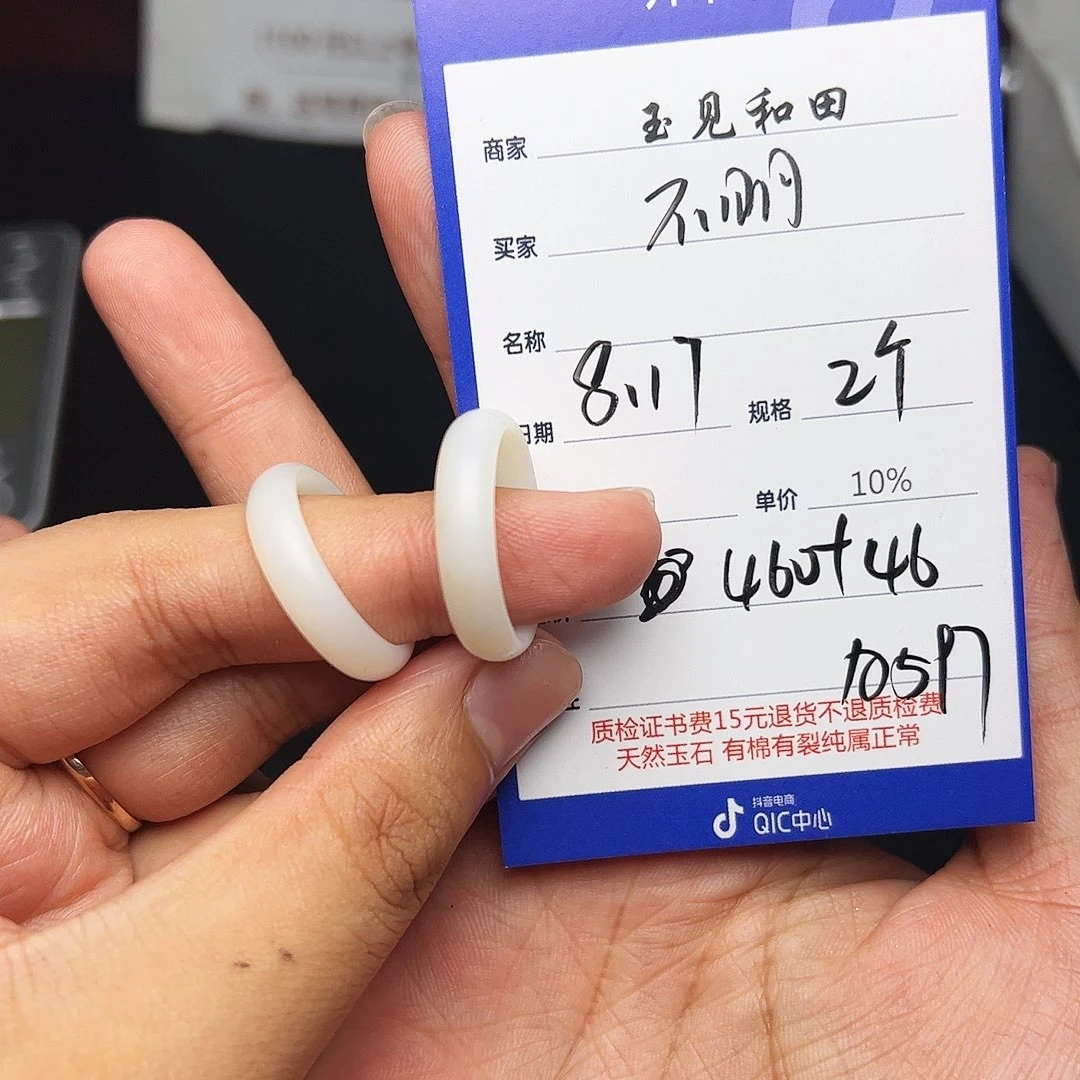 商家 玉见和田
买家
名称
日期 8.17 规格 2个
单价 10%
460+46
质检证书费15元退货不退质检费
天然玉石 有棉有裂纯属正常
抖音电商
QIC中心